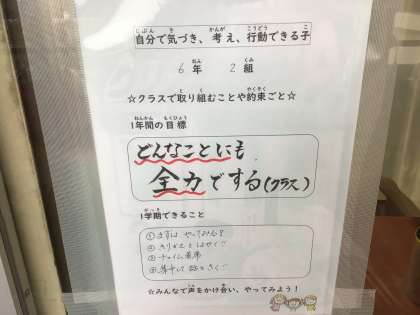 自分で気づき、考え、行動できる子
6年 2組
☆クラスで取り組むことや約束ごと☆
1年間の目標
どんなことにも
全力でする(クラス)
1学期できること
①まずは やってみる!
②きりかえ はやく!!
③チャイム着席
④集中して 話をきく!
☆みんなで声をかけ合い、やってみよう!